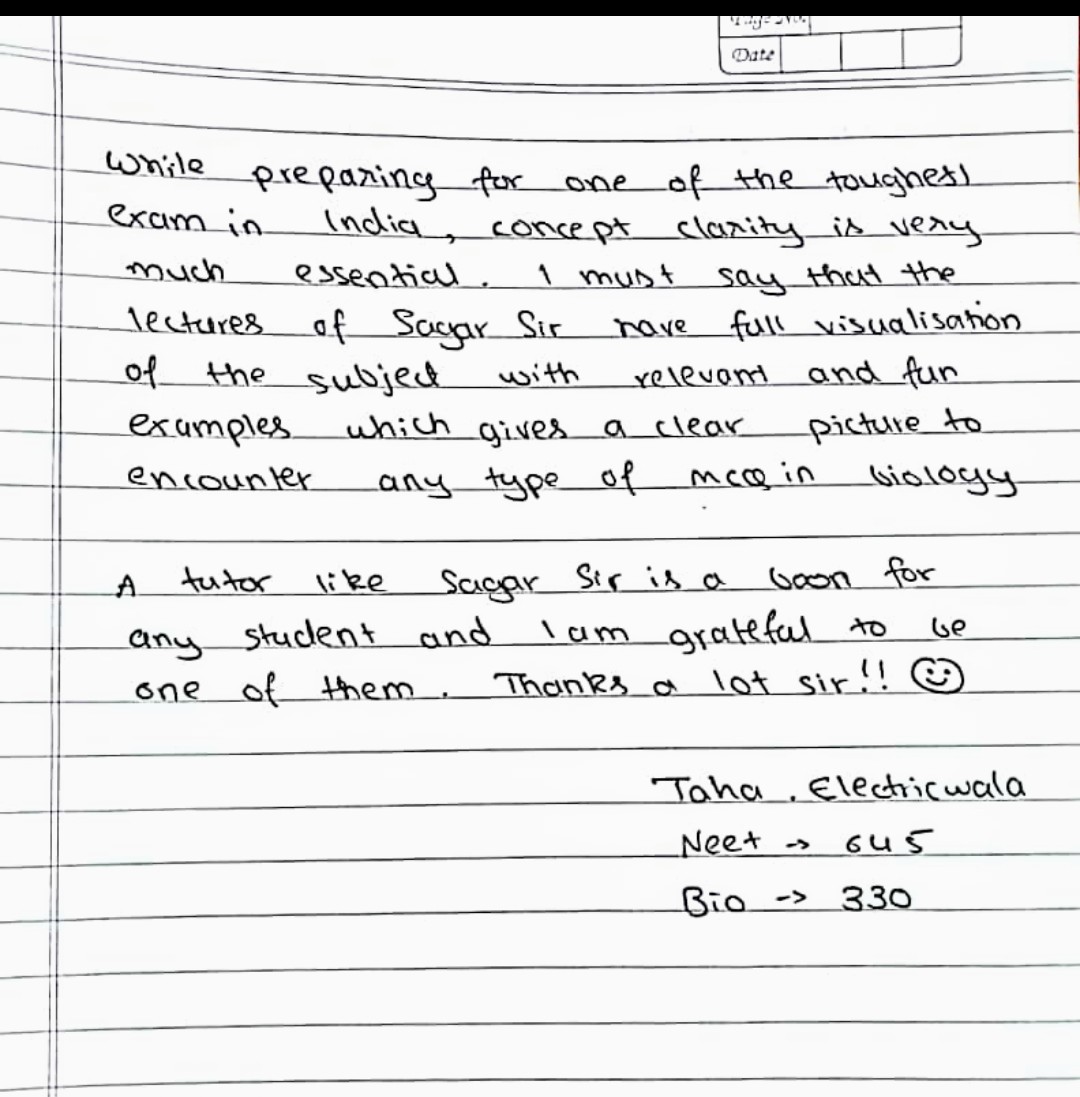 Date
While preparing for one of the toughest
exam in India, concept clarity is very
much essential. I must say that the
lectures of Sagar Sir have full visualisation
of the subject with relevant and fun
examples which gives a clear picture to
encounter any type of mcq in biology
A tutor like Sagar Sir is a boon for
any student and I am grateful to be
one of them. Thanks a lot sir!! ☺
Taha. Electricwala
Neet -> 645
Bio -> 330